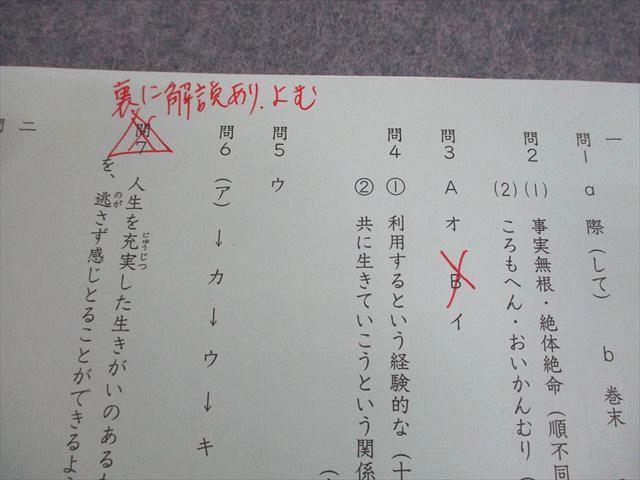 裏に解説あり.よむ
一
問1 a 際(して) b 巻末
問2 (1) 事実無根・絶体絶命(順不同
(2) ころもへん・おいかんむり(
問3 A オ B イ
問4 ① 利用するという経験的な(十
② 共に生きていこうという関係
問5 ウ
問6 (ア)→カ→ウ→キ
問7 人生を充実した生きがいのある
じゅうじつ
を、逃さず感じとることができるよう
のが
二
問